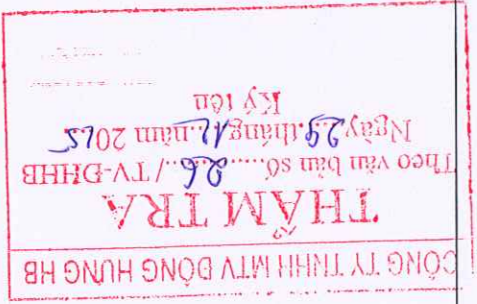 CÔNG TY TNHH MTV ĐÔNG HƯNG HB
THẨM TRA
Theo văn bản số.....26...../TV-ĐHHB
Ngày 29 tháng 12 năm 2015
Ký tên